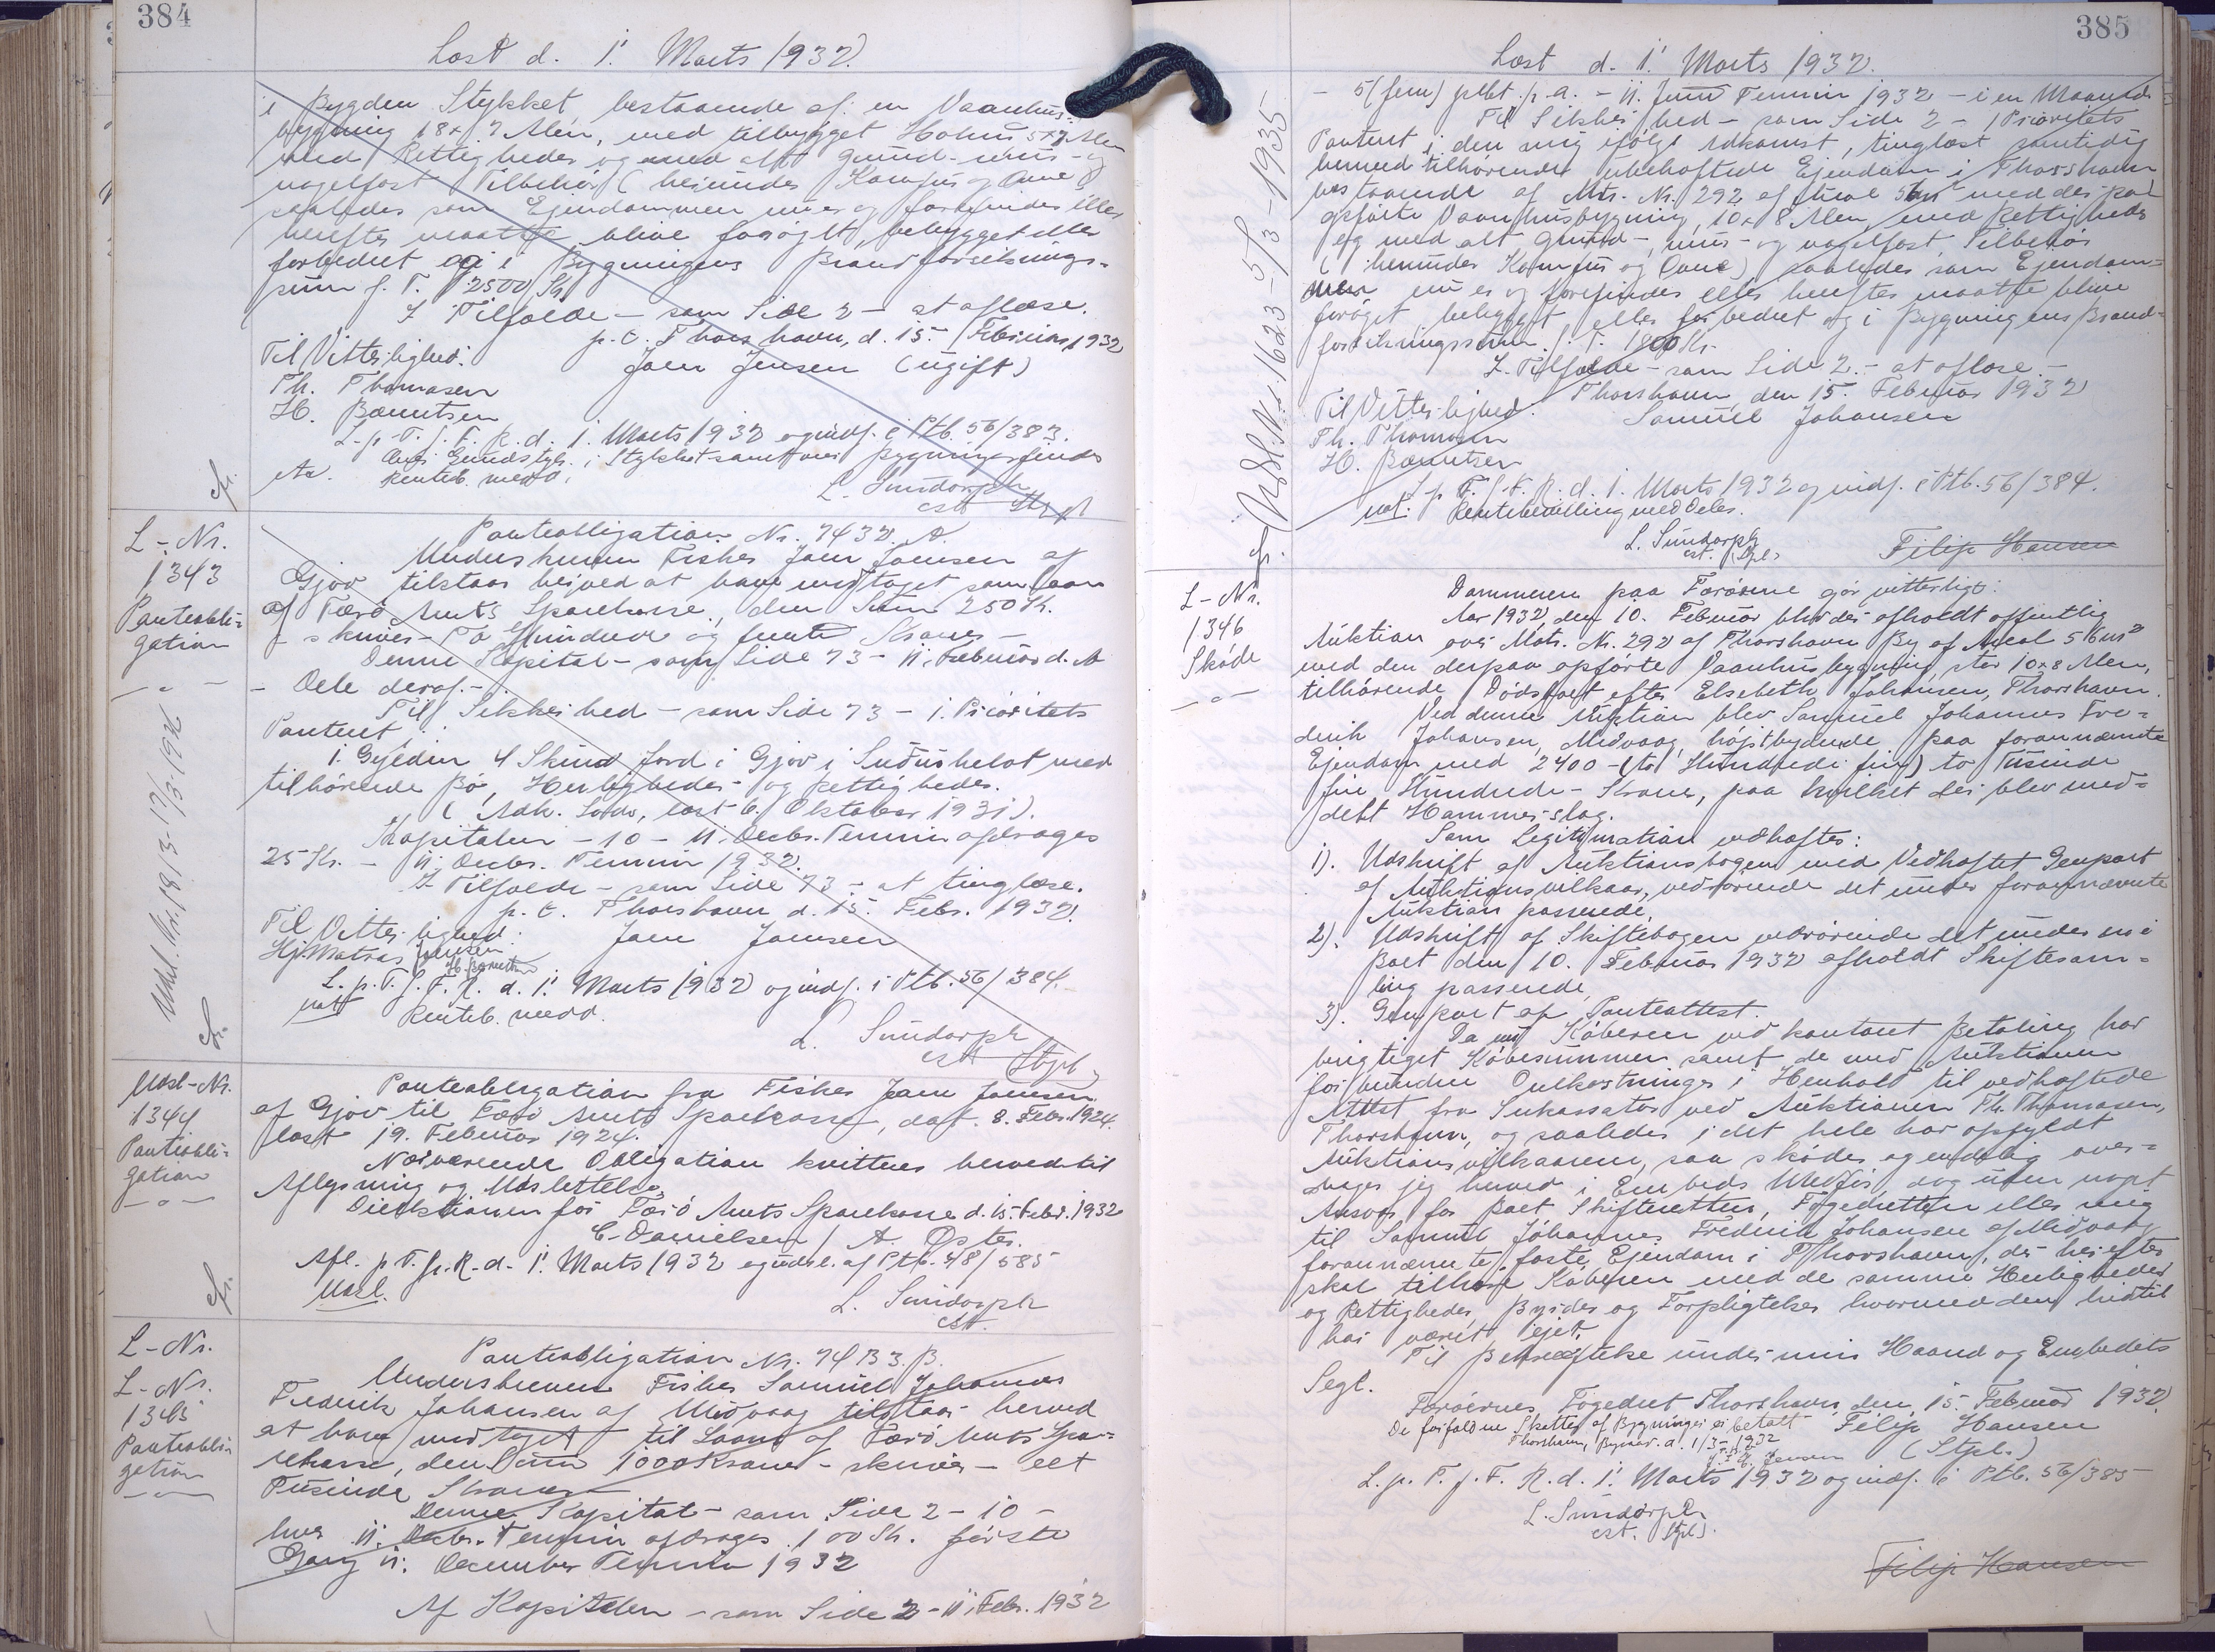 384
Læst d. 1' Marts 1932.
i Bygden Stykket, bestaaende af: en Vaanhus-
bygning 18 x 7 Alen, med tilbygget 5x7 Alen
med Rettigheder og med alt grund- mur- og
nagelfast Tilbehör (herunder Komfur og Ovne)
saaledes som Ejendommen nu er og forefindes eller
herefter maatte blive forøget, bebygget eller
forbedret og i Bygningens Brandforsikrings-
sum f. T. 2500 Kr.
I Tilfælde - som Side 2 - at aflæse.
p. t. Thorshavn, d. 15. Februar 1932
Til Vitterlighed: Joen Jensen (ugift)
Th. Thomasen
H. Bærentsen
L. p. T. f. F. R. d. 1. Marts 1932 og indf. i Ptb. 56/383.
Over Grundstyk. i Stykket samt over Bygningen findes
Renteb. medd.
L. Sundorph
cst. Stpl
L-Nr.
1343
Panteobli-
gation
Panteobligation Nr. 7432. A.
Underskreven Fisker Joen Joensen af
Gjov tilstaar herved at have modtaget som Laan
af Færö Amts Sparekasse, den Sum 250 Kr.
- skriver - To Hundrede og femti Kroner -
Denne Kapital - som Side 73 - 11. Februar d. A.
- Dele deraf. -
Til Sikkerhed - som Side 73 - 1. Prioritets
Panteret i
1. Gylden 4 Skind Jord i Gjov i Suðurhelvt med
tilhörende Bö, Herligheder og Rettigheder.
(Adk. Skøde, læst 6. Oktober 1931).
Kapitalen - 10 - 11. Decbr. Termin afdrages
25 Kr. - 11. Decbr. Termin 1932.
I Tilfælde - som Side 73 - at tinglæse.
p. t. Thorshavn d. 15. Febr. 1932.
Til Vitterlighed: Joen Joensen
Hj. Matras Jensen
H. Bærentsen
L. p. T. f. F. R. d. 1' Marts 1932 og indf. i Ptb. 56/384.
Renteb. medd.
L. Sundorph
cst Stpl
Udsl. Nr. 1813-17/3-1936
Udsl-Nr.
1344
Panteobli-
gation
Panteobligation fra Fisker Joen Joensen
af Gjov til Færö Amts Sparekasse, dat. 8. Febr. 1924
læst 19. Februar 1924.
Nærværende Obligation kvitteres herved til
Aflysning og Udslettelse.
Direktionen for Færö Amts Sparekasse d. 15. Febr. 1932
C. Danielsen / A. Øster.
Afl. p. T. f. F. R. d. 1' Marts 1932 og udsl. af Ptb. 48/585
Udsl.
L. Sundorph
cst.
L-Nr.
L-Nr.
1345
Panteobli-
gation
Panteobligation Nr. 7433. B.
Underskreven Fisker Samuel Johannes
Frederik Johansen af Midvaag tilstaar herved
at have modtaget til Laans af Færö Amts Spa-
rekasse, den Sum 1000 Kroner - skriver - eet
Tusinde Kroner
Denne Kapital - som Side 2 - 10 -
hver 11. Decbr. Termin afdrages 100 Kr. förste
Gang 11. December Termin 1932
Af Kapitalen - som Side 2 - 11. Febr. 1932
385
Læst d. 1' Marts 1932.
- 5 (fem) pCt. p. a. - 11. Juni Termin 1932 - i en Maaned
Til Sikkerhed - som Side 2 - 1 Prioritets
Panteret i den mig ifølge Adkomst, tinglæst samtidig
hermed tilhörende ubehæftede Ejendom i Thorshavn
bestaaende af Mtr. Nr. 292 af Areal 56 m² med der paa
opførte Vaanhusbygning, 10 x 8 Alen med Rettigheder
og med alt grund-, mur- og nagelfast Tilbehör
(herunder Komfur og Ovne) saaledes som Ejendom-
men nu er og forefindes eller herefter maatte blive
forøget bebygget eller forbedret og i Bygningens Brand-
forsikringssum f. T. 1800 Kr.
I Tilfælde - som Side 2. - at aflæse. -
Thorshavn, den 15. Februar 1932
Til Vitterlighed. Samuel Johansen
Th. Thomasen
H. Bærentsen
L. p. T. f. F. R. d. 1. Marts 1932 og indf. i Ptb. 56/384.
not. Rentebevilling meddeles.
L. Sundorph
cst. (Stpl.)
Filip Hansen
Udsl. Nr. 1623-5/3-1935
L-Nr.
1346
Sköde
Dommeren paa Færöerne gör vitterligt:
Aar 1932, den 10. Februar blev der afholdt offentlig
Auktion over Matr. Nr. 292 af Thorshavn By af Areal 56 m²
med den derpaa opförte Vaanhusbygning, stor 10 x 8 Alen,
tilhörende Dödsboet efter Elsebeth Johansen, Thorshavn.
Ved denne Auktion blev Samuel Johannes Fre-
derik Johansen, Midvaag, højstbydende paa forannævnte
Ejendom med 2400 - (to Hundrede fir) to Tusinde
fire Hundrede - Kroner, paa hvilket der blev med-
delt Hammerslag.
Som Legitimation vedhæftes:
1). Udskrift af Auktionsbogen med Vedhæftet Genpart
af Auktionsvilkaar, vedrörende det under forannævnte
Auktion passerede,
2). Udskrift af Skiftebogen vedrörende det under en i
Boet den 10. Februar 1932 afholdt Skiftesam-
ling passerede,
3). Genpart af Panteattest.
Da nu Köberen ved kontant Betaling har
berigtiget Köbesummen samt de med Auktionen
forbundne Omkostninger i Henhold til vedhæftede
Attest fra Inkassator ved Auktionen Th. Thomasen,
Thorshavn, og saaledes i det hele har opfyldt
Auktionsvilkaarene, saa sköder og endelig over-
drager jeg herved i Embeds Medför, dog uden noget
Ansvar for Boet Skifteretten, Fogedretten eller mig
til Samuel Johannes Frederik Johansen af Midvaag
forannævnte faste Ejendom i Thorshavn, der herefter
skal tilhöre Köberen med de samme Herligheder
og Rettigheder, Byrder og Forpligtelser hvormed den hidtil
har været ejet.
Til Bekræftelse under min Haand og Embedets
Segl.
Færöernes Fogedret Thorshavn, den 15. Februar 1932.
De forfaldne Skatter af Bygningen er betalt Filip Hansen
Thorshavn, Byraad. d. 1/3-1932 (Stpl.)
Jensen
L. p. T. f. F. R. d. 1' Marts 1932 og indf. i Ptb. 56/385
L. Sundorph
cst. Stpl.
Filip Hansen